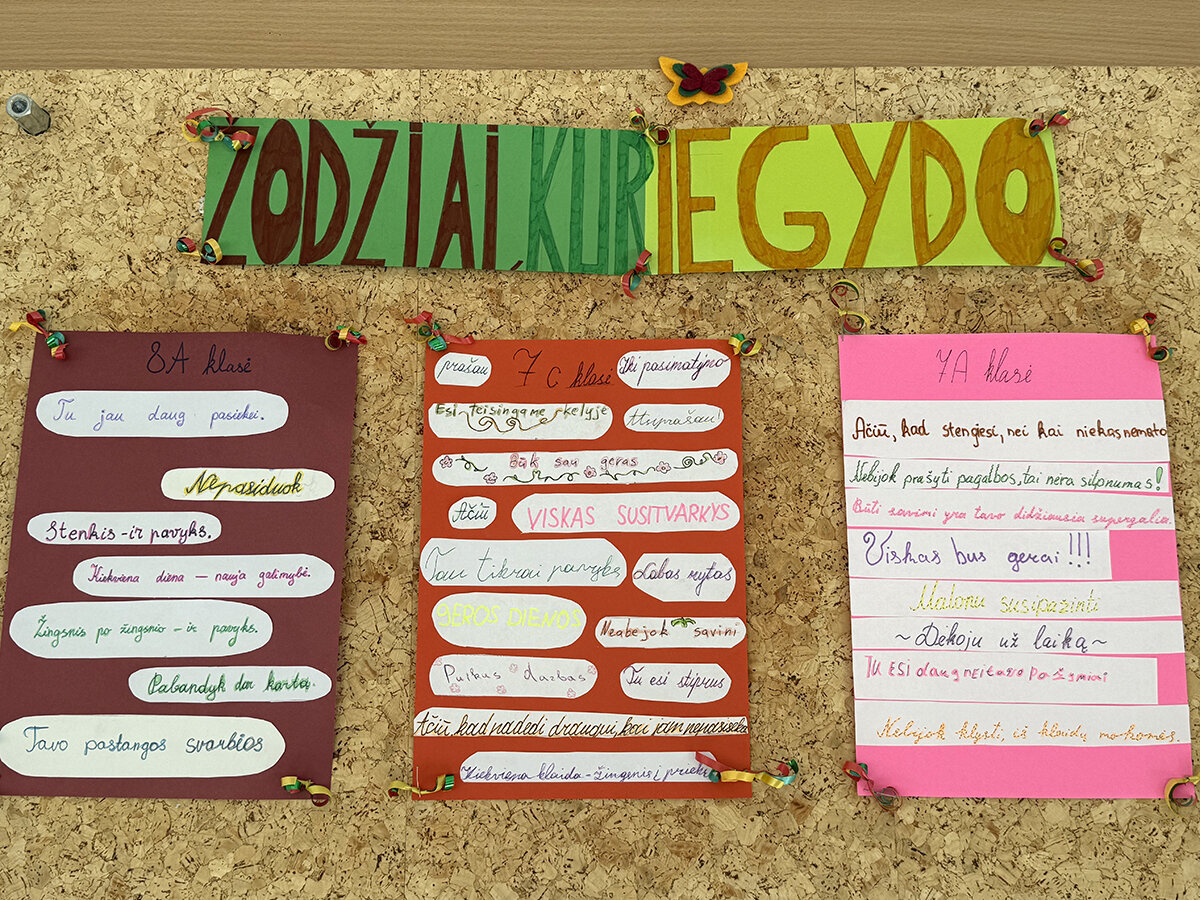 ŽODŽIAI, KURIE GYDO
8A klasė
Tu jau daug pasiekei.
Nepasiduok
Stenkis - ir pavyks.
Kiekviena diena — nauja galimybė.
Žingsnis po žingsnio - ir pavyks.
Pabandyk dar kartą.
Tavo pastangos svarbios
7c klasė
prašau
Iki pasimatymo
Esi teisingame kelyje
Atsiprašau!
Būk sau geras
Ačiū
VISKAS SUSITVARKYS
Tau tikrai pavyks
Labas rytas
GEROS DIENOS
Neabejok savimi
Puikus darbas
Tu esi stiprus
Ačiū, kad padedi draugui, kai jam nepasiseka
Kiekviena klaida - žingsnis į priekį
7A klasė
Ačiū, kad stengiesi, nei kai niekas nemato
Nebijok prašyti pagalbos, tai nėra silpnumas!
Būti savimi yra tavo didžiausia supergalia.
Viskas bus gerai!!!
Malonu susipažinti
~Dėkoju už laiką~
TU ESI daug nei tavo pažymiai
Nebijok klysti, iš klaidų mokomės.